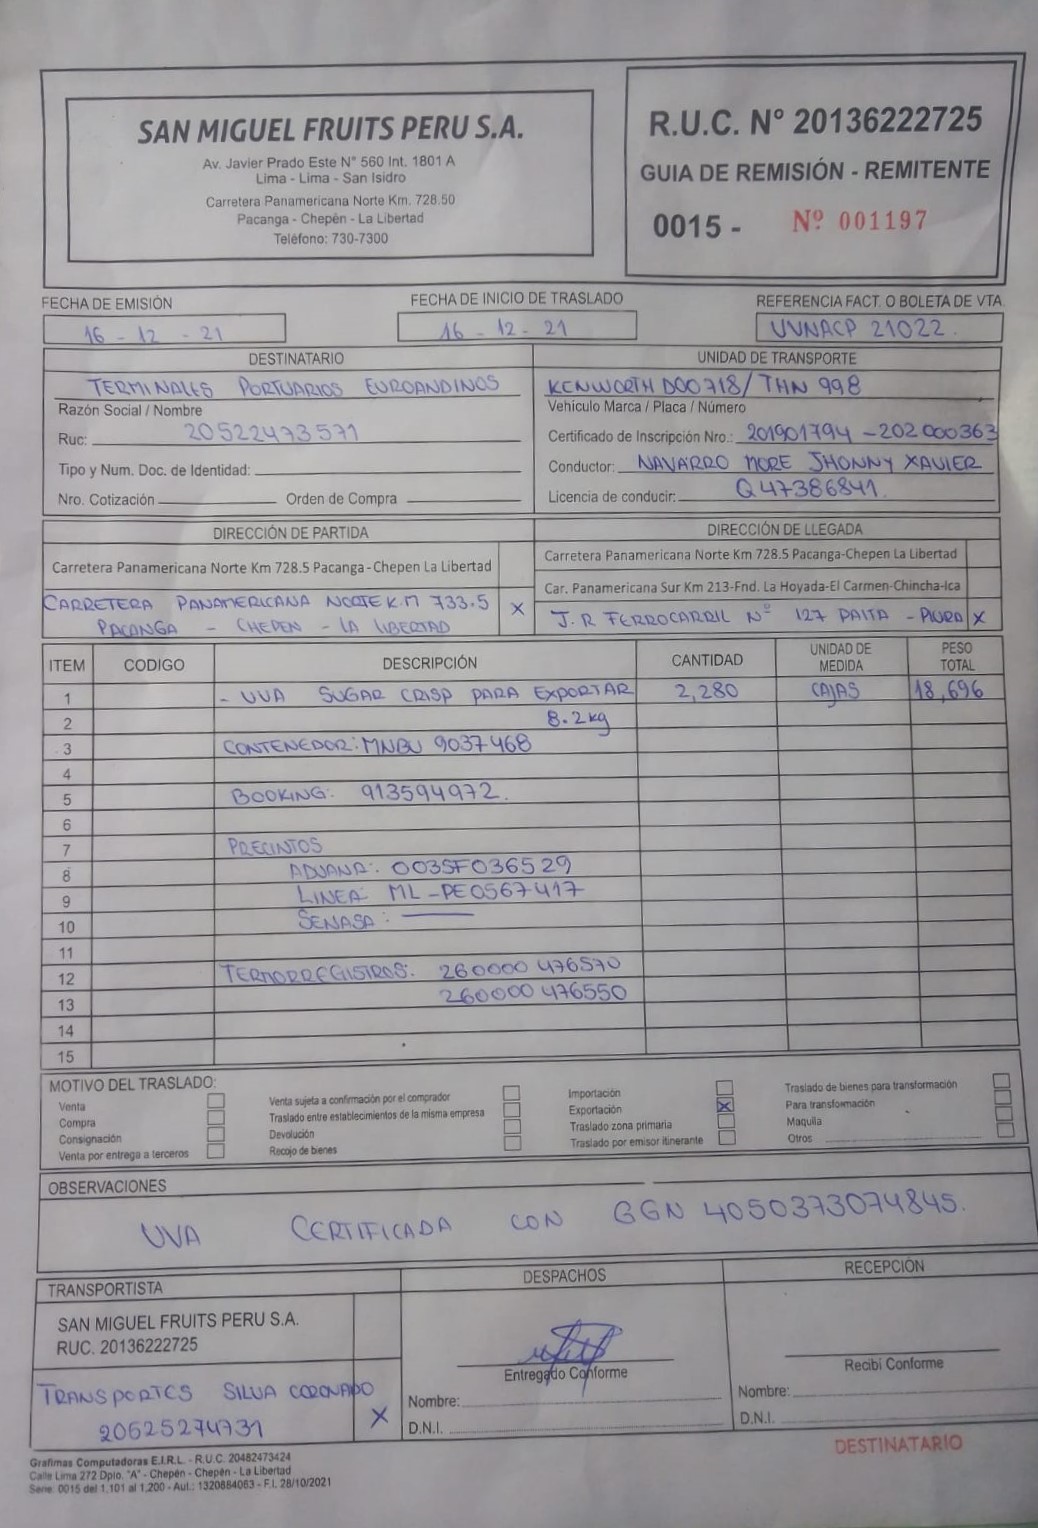 SAN MIGUEL FRUITS PERU S.A.
Av. Javier Prado Este N° 560 Int. 1801 A
Lima - Lima - San Isidro
Carretera Panamericana Norte Km. 728.50
Pacanga - Chepén - La Libertad
Teléfono: 730-7300
R.U.C. N° 20136222725
GUIA DE REMISIÓN - REMITENTE
0015 - Nº 001197
FECHA DE EMISIÓN
16 - 12 - 21
FECHA DE INICIO DE TRASLADO
16 - 12 - 21
REFERENCIA FACT. O BOLETA DE VTA.
UVNACP 21022.
DESTINATARIO
TERMINALES PORTUARIOS EUROANDINOS
Razón Social / Nombre
Ruc: 20522473571
Tipo y Num. Doc. de Identidad:
Nro. Cotización Orden de Compra
UNIDAD DE TRANSPORTE
KENWORTH D00718/ THN 998
Vehículo Marca / Placa / Número
Certificado de Inscripción Nro.: 201901794 - 202000363
Conductor: NAVARRO MORE JHONNY XAVIER
Licencia de conducir: Q47386841.
DIRECCIÓN DE PARTIDA
Carretera Panamericana Norte Km 728.5 Pacanga-Chepen La Libertad
CARRETERA PANAMERICANA NORTE K.M 733.5 X
PACANGA - CHEPEN - LA LIBERTAD
DIRECCIÓN DE LLEGADA
Carretera Panamericana Norte Km 728.5 Pacanga-Chepen La Libertad
Car. Panamericana Sur Km 213-Fnd. La Hoyada-El Carmen-Chincha-Ica
J.R FERROCARRIL Nº 127 PAITA - PIURA X
ITEM CODIGO DESCRIPCIÓN CANTIDAD UNIDAD DE MEDIDA PESO TOTAL
1 - UVA SUGAR CRISP PARA EXPORTAR 2,280 CAJAS 18,696
2 8.2kg
3 CONTENEDOR: MNBU 9037468
4
5 BOOKING: 913594972.
6
7 PRECINTOS
8 ADUANA: 0035F036529
9 LINEA: ML-PE0567417
10 SENASA: ———
11
12 TERMORREGISTROS: 260000 476570
13 260000 476550
14
15
MOTIVO DEL TRASLADO:
Venta
Compra
Consignación
Venta por entrega a terceros
Venta sujeta a confirmación por el comprador
Traslado entre establecimientos de la misma empresa
Devolución
Recojo de bienes
Importación
Exportación X
Traslado zona primaria
Traslado por emisor itinerante
Traslado de bienes para transformación
Para transformación
Maquila
Otros
OBSERVACIONES
UVA CERTIFICADA CON GGN 4050373074845.
TRANSPORTISTA
SAN MIGUEL FRUITS PERU S.A.
RUC. 20136222725
TRANSPORTES SILVA CORONADO
20525274731 X
DESPACHOS
Entregado Conforme
Nombre:
D.N.I.
RECEPCIÓN
Recibí Conforme
Nombre:
D.N.I.
DESTINATARIO
Grafimas Computadoras E.I.R.L. - R.U.C. 20482473424
Calle Lima 272 Dpto. "A" - Chepén - Chepén - La Libertad
Serie: 0015 del 1,101 al 1,200 - Aut.: 1320864063 - F.I. 28/10/2021